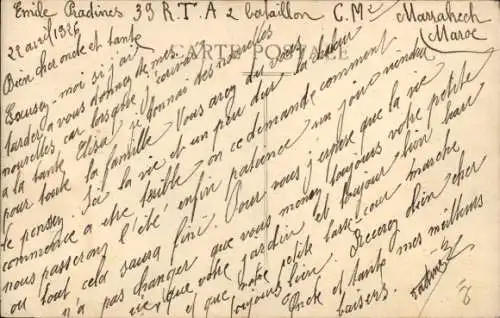 Emile Pradines 39 R.T.A 2 bataillon C.Mr Marrakech
Maroc
22 avril 1926
CARTE POSTALE
Bien cher oncle et tante
Excusez moi si j'ai
tarder a vous donnez de mes
nouvelles car lorsque j'écrivait
a la tante Elisa je donnai des nouvelles
pour toute la famille Vous avez du vous
le pensez. Ici la vie et un peu dur la chaleur
commence a etre terrible on ce demande comment
nous passerons l'été enfin patience un jour viendra
ou tout cela saura fini. Pour vous j'espere que la vie
n'a pas changer que vous menez toujours votre petite
vie, que votre jardin et toujour bien beau
et que votre petite basse-cour marche
toujours bien. Recevez bien cher
Oncle et tante mes meilleurs
baisers.
Pradines E